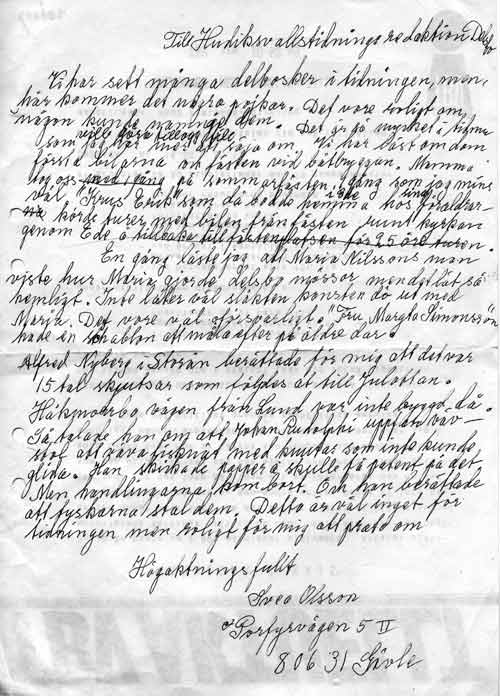 Till Hudiksvallstidnings redaktion Delsbo
Vi har sett många delboskor i tidningen, men
här kommer det några pojkar. Det vore roligt om
någon kunde namnge dem.
som jag har mer att säga om. Vi har läst om dom
första bilarna och fästen vid båtbyggen. Mamma
tog oss på sommarfästen en gång som jag minns
väl. "Krus Erik" som då bodde hemma hos föräldrar-
na körde turer med bilen från fästen runt kyrkan
genom Ede, å tillbaka till fästenplatsen för 25 öre turen.
En gång läste jag att Maria Nilssons man
visste hur Maria gjorde Delsbo mössor men det lät så
hemligt. Inte låter väl släkten konsten dö ut med
Maria. Det vore väl oförsvarligt. "Fru Margta Simonsson
hade en schablon att måla efter på äldre dar.
Alfred Nyberg i Storån berättade för mig att det var
15 tal skjutsar som följdes åt till Julottan.
Håkmorbo vägen från Lund var inte byggd då.
Så talade han om att Johan Rudolphi uppfann väv-
stol att väva fisknät med knutar som inte kunde
glida. Han skickade papper å skulle få patent på det
Men handlingarna kom bort. Och han berättade
att tyskarna stal dem. Detta är väl inget för
tidningen men roligt för mig att prata om
Högaktningsfullt
Svea Olsson
Porfyrvägen 5 II
806 31 Gävle